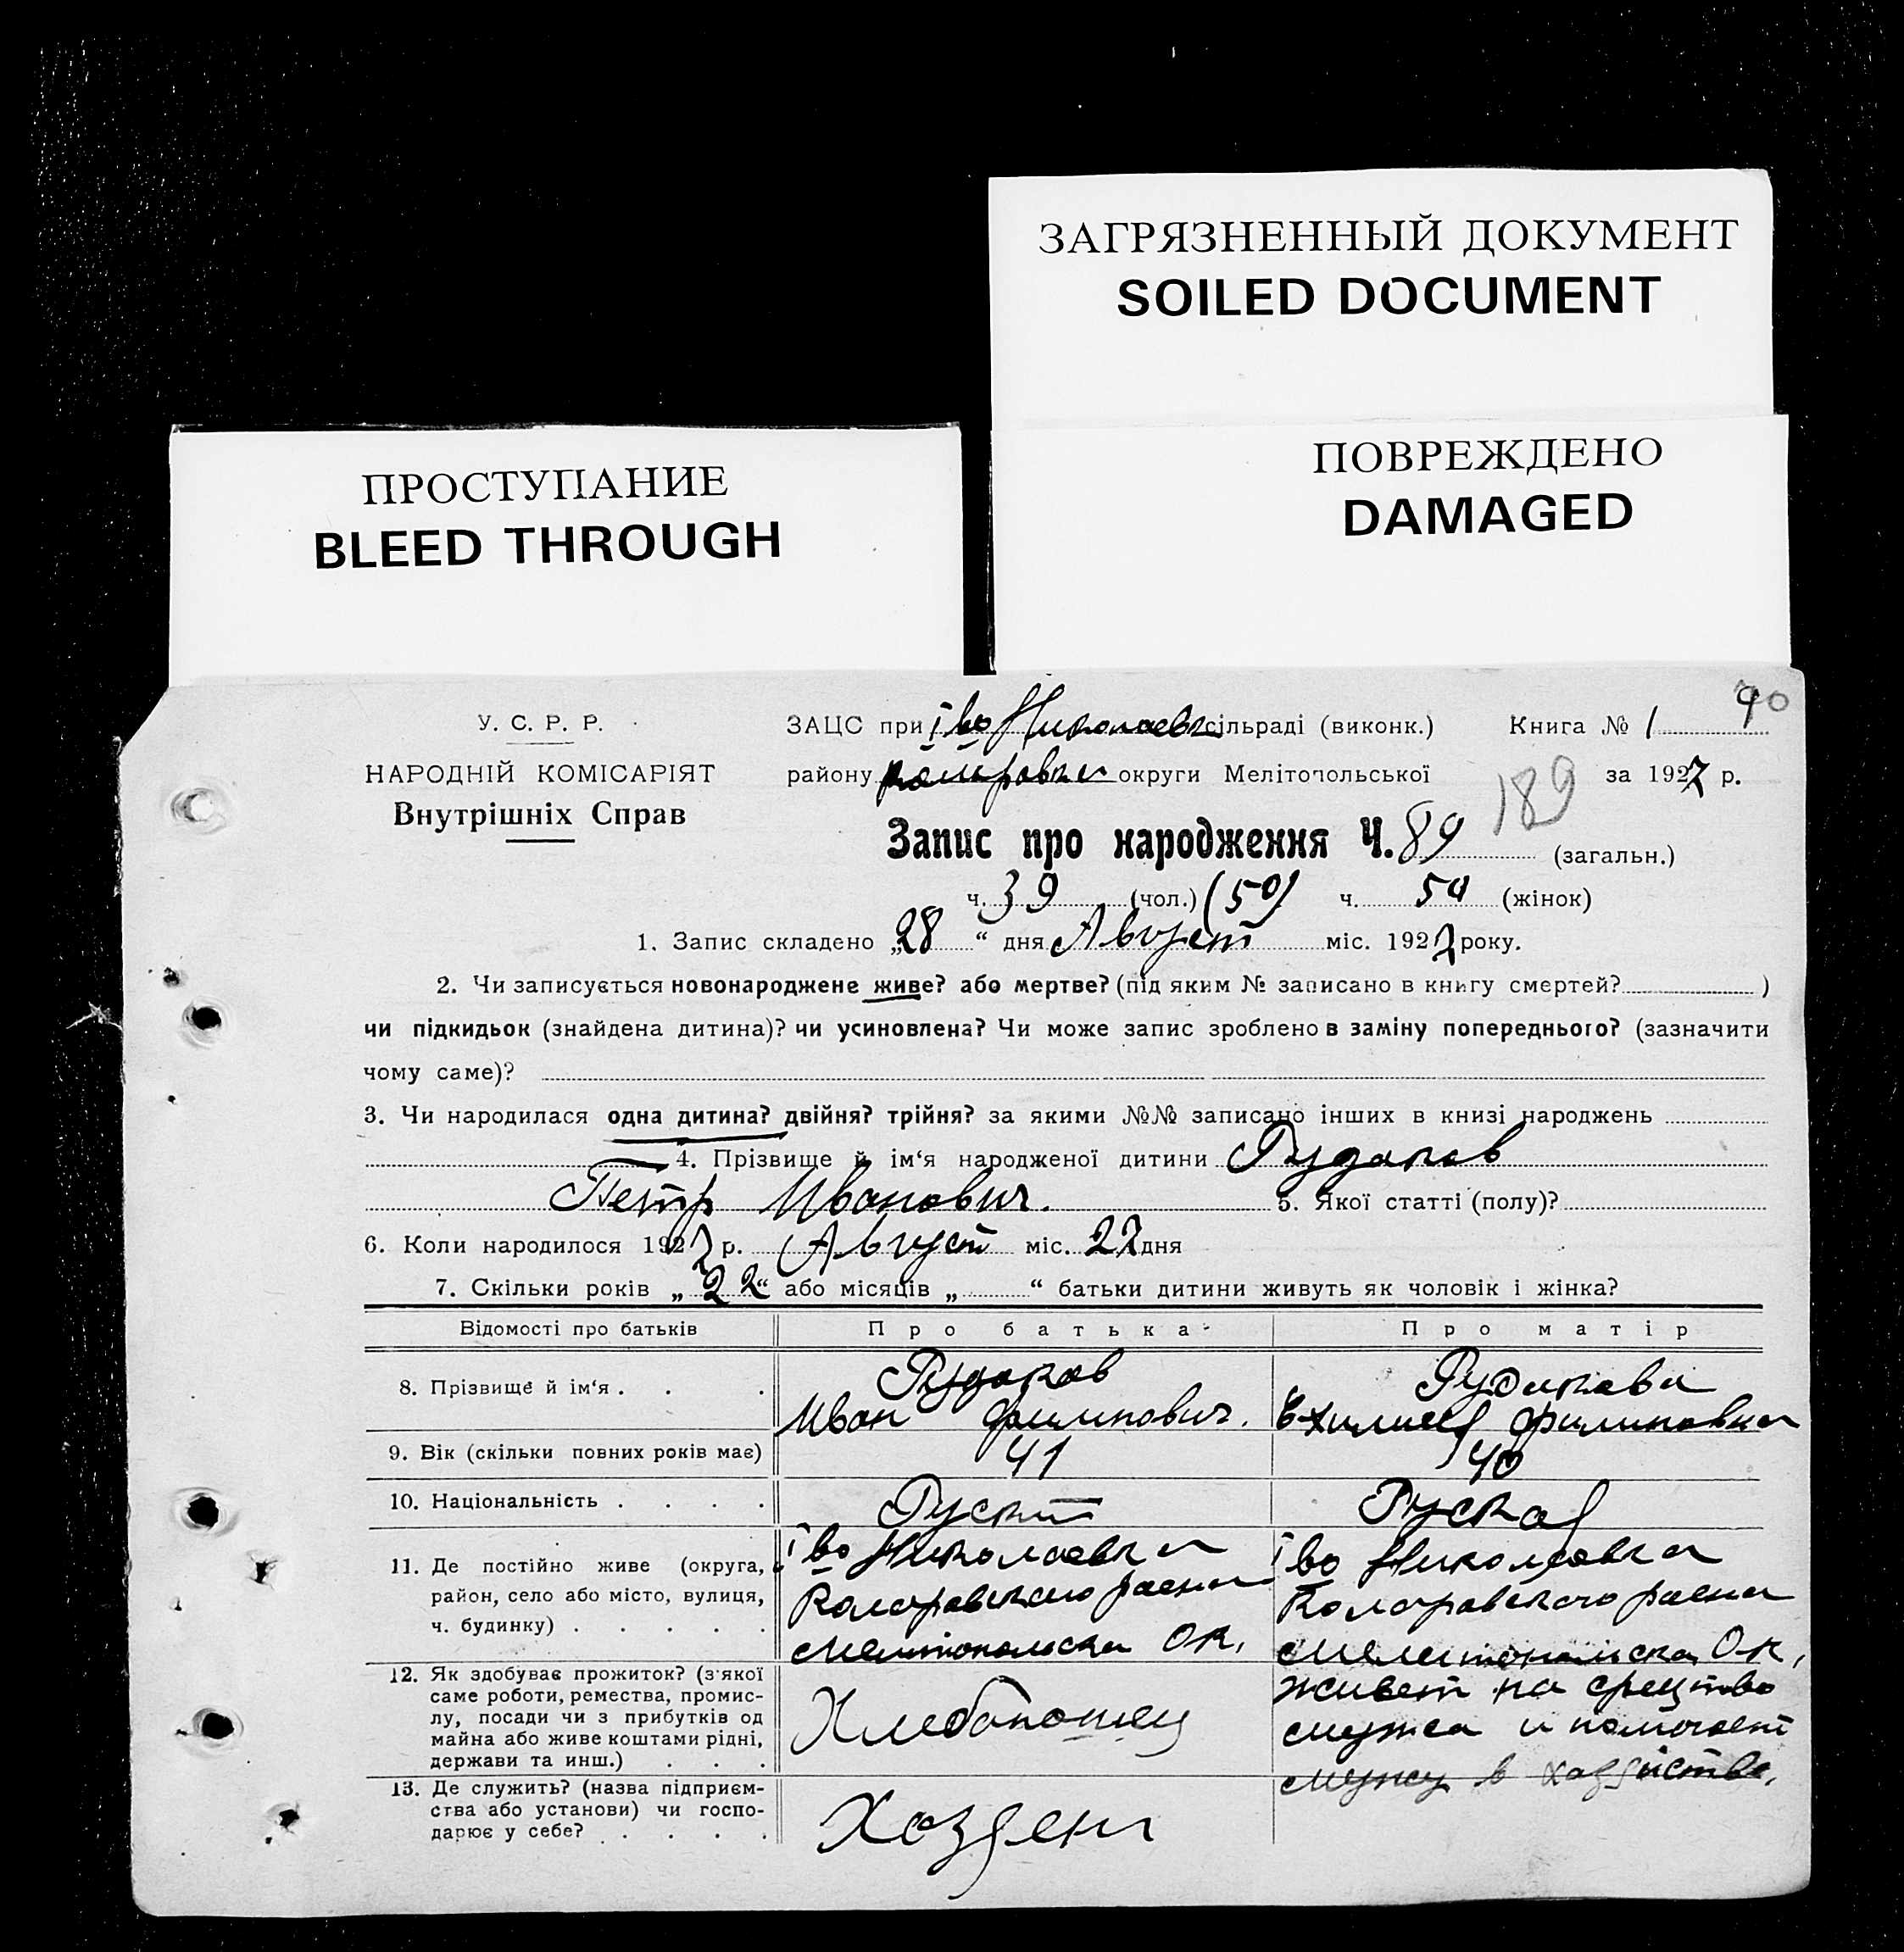 ЗАГРЯЗНЕННЫЙ ДОКУМЕНТ
SOILED DOCUMENT
ПОВРЕЖДЕНО
DAMAGED
ПРОСТУПАНИЕ
BLEED THROUGH
90
У. С. Р. Р.
НАРОДНІЙ КОМІСАРІЯТ
Внутрішніх Справ
ЗАЦС при Іво Николаевк сільраді (виконк.) Книга № 1
району округи Мелітопольської за 1927 р.
189
Запис про народження Ч. 89 (загальн.)
ч. 39 (чол.) (50) ч. 50 (жінок)
1. Запис складено „28“ дня Август міс. 1927 року.
2. Чи записується новонароджене живе? або мертве? (під яким № записано в книгу смертей? )
чи підкидьок (знайдена дитина)? чи усиновлена? Чи може запис зроблено в заміну попереднього? (зазначити
чому саме)?
3. Чи народилася одна дитина? двійня? трійня? за якими №№ записано інших в книзі народжень
4. Прізвище й ім‘я народженої дитини Рудаков
Петр Иванович. 5. Якої статті (полу)?
6. Коли народилося 1927 р. Август міс. 27 дня
7. Скільки років „22“ або місяців „ “ батьки дитини живуть як чоловік і жінка?
Відомості про батьків Про батька Про матір
8. Прізвище й ім‘я . . . Рудаков Рудакова
Иван Филипович. Филиповна
9. Вік (скільки повних років має) 41 40
10. Національність . . . . Руский Руская
11. Де постійно живе (округа, район, село або місто, вулиця, ч. будинку) . . . . .
Іво Николаевка Іво Николаевка
раена раена
Мелитопольска Ок. Мелитопольска Ок.
12. Як здобуває прожиток? (з якої саме роботи, ремества, промислу, посади чи з прибутків од майна або живе коштами рідні, держави та инш.) . . .
Хлебопашец
живет на срецтво
мужа и помогает
мужу в хозяйстве.
13. Де служить? (назва підприємства або установи) чи господарює у себе? . . . .